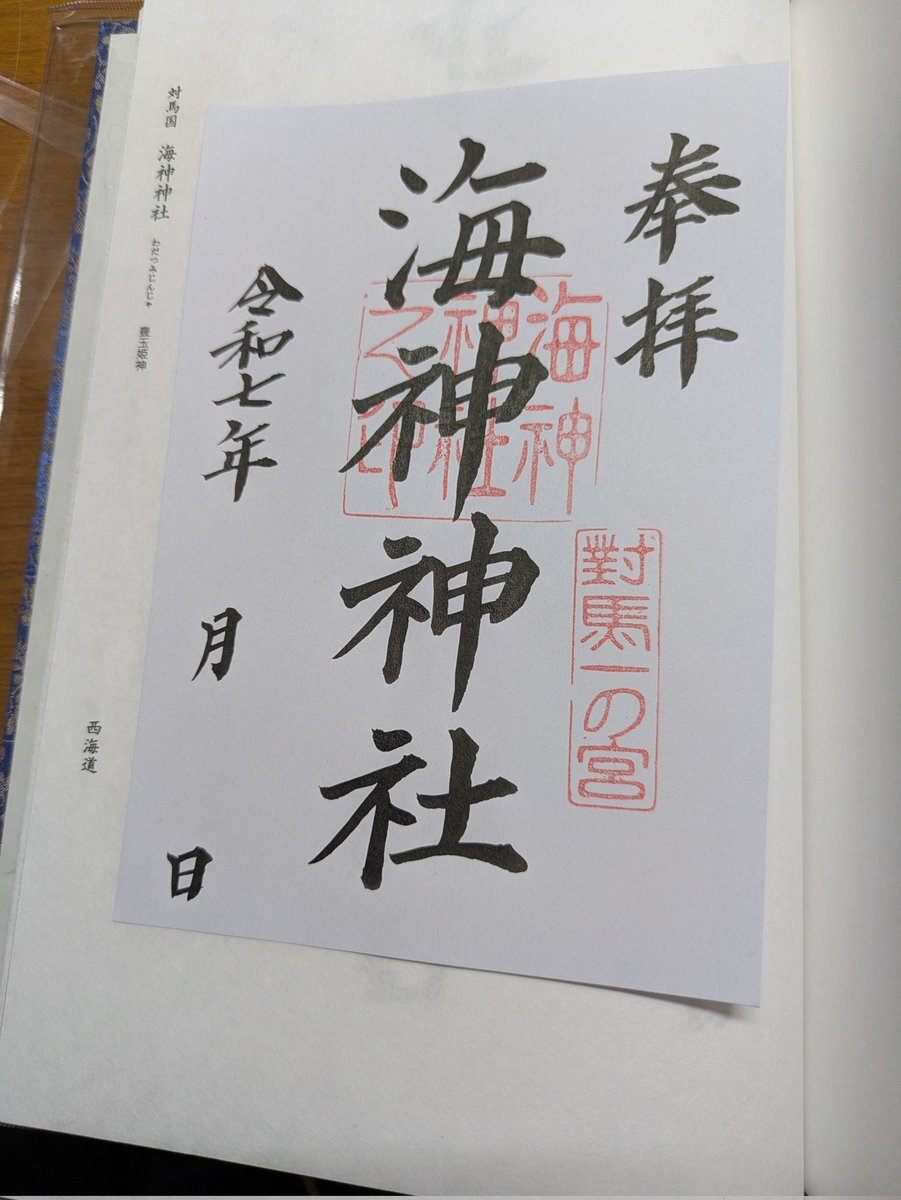 奉拝
海神神社
海神神社之印
對馬一の宮
令和七年 月 日
対馬国 海神神社 わだつみじんじゃ 豊玉姫神
西海道